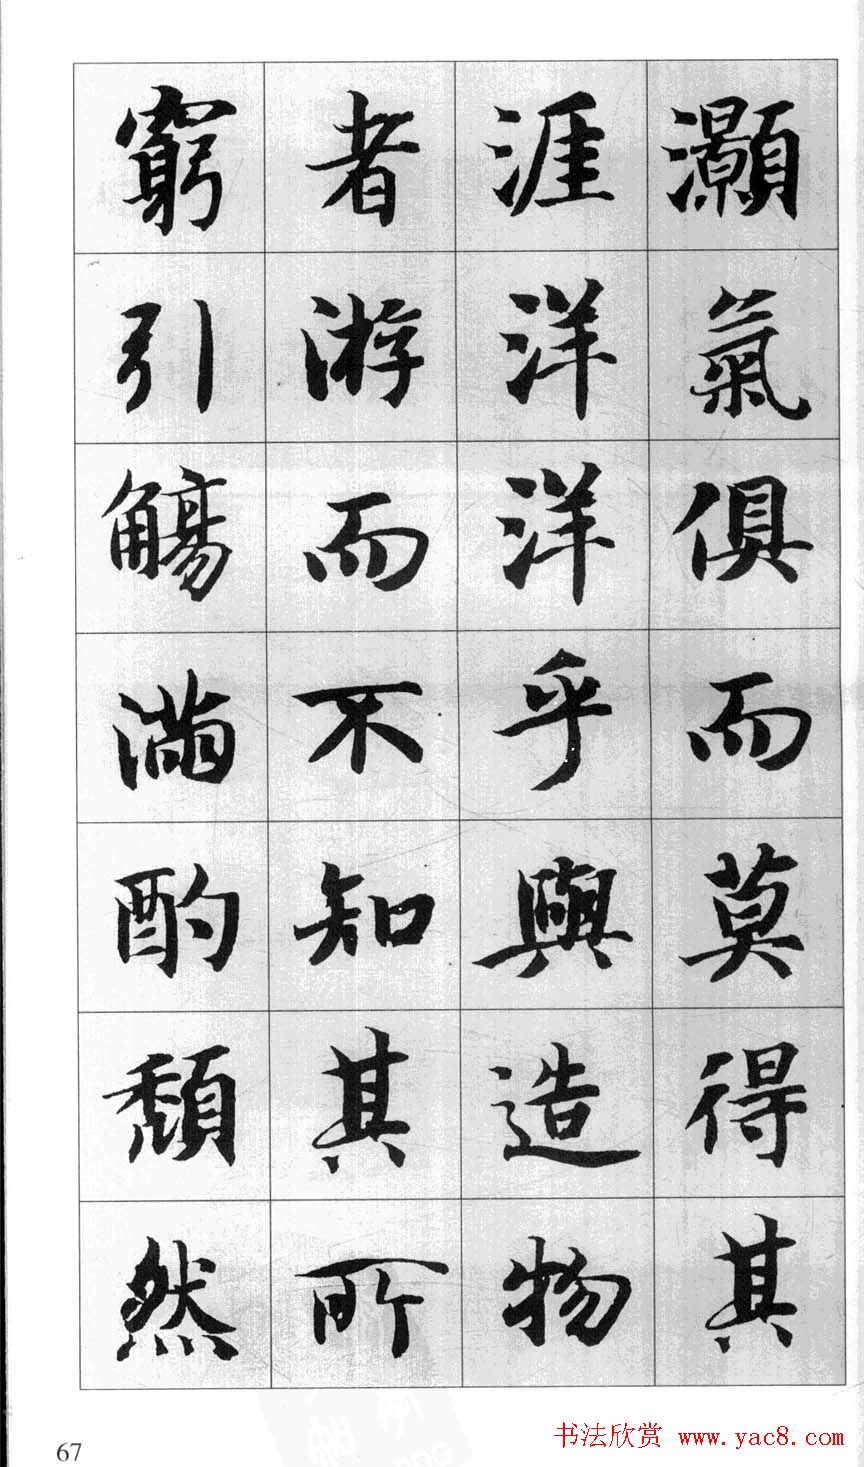 灝氣俱而莫得其
涯洋洋乎與造物
者游而不知其所
窮引觴滿酌頹然
67
书法欣赏 www.yac8.com